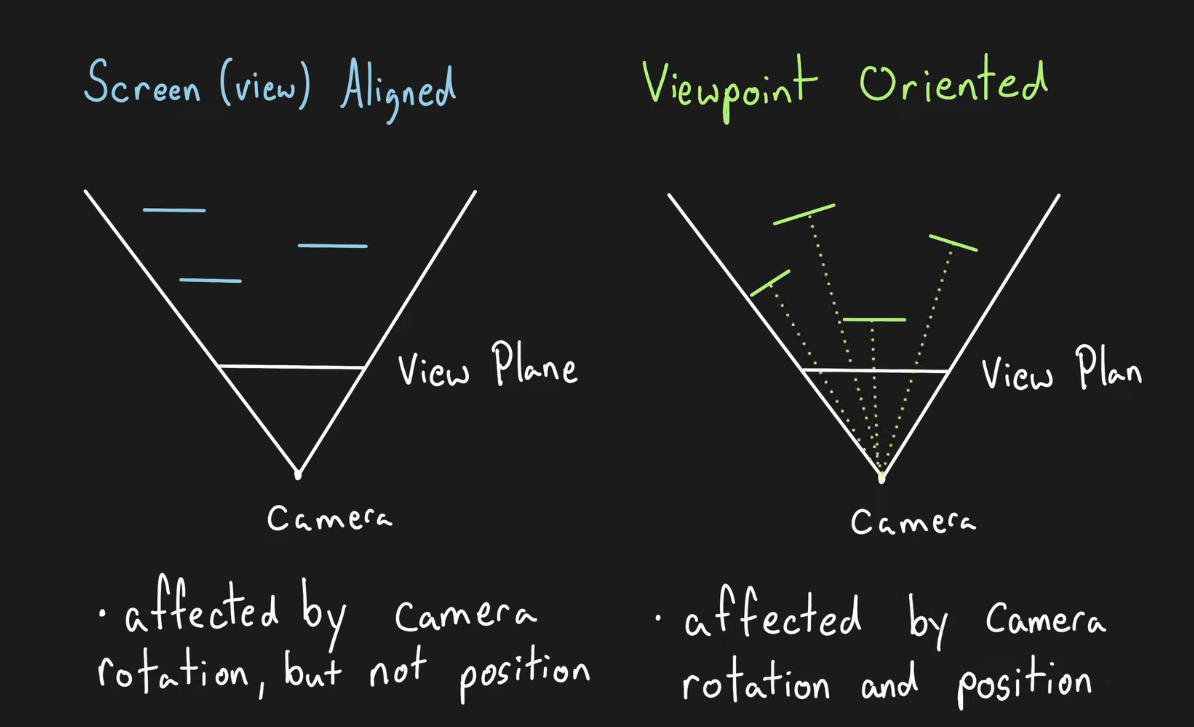 Screen (view) Aligned
View Plane
Camera
· affected by camera
rotation, but not position
Viewpoint Oriented
View Plan
Camera
· affected by camera
rotation and position